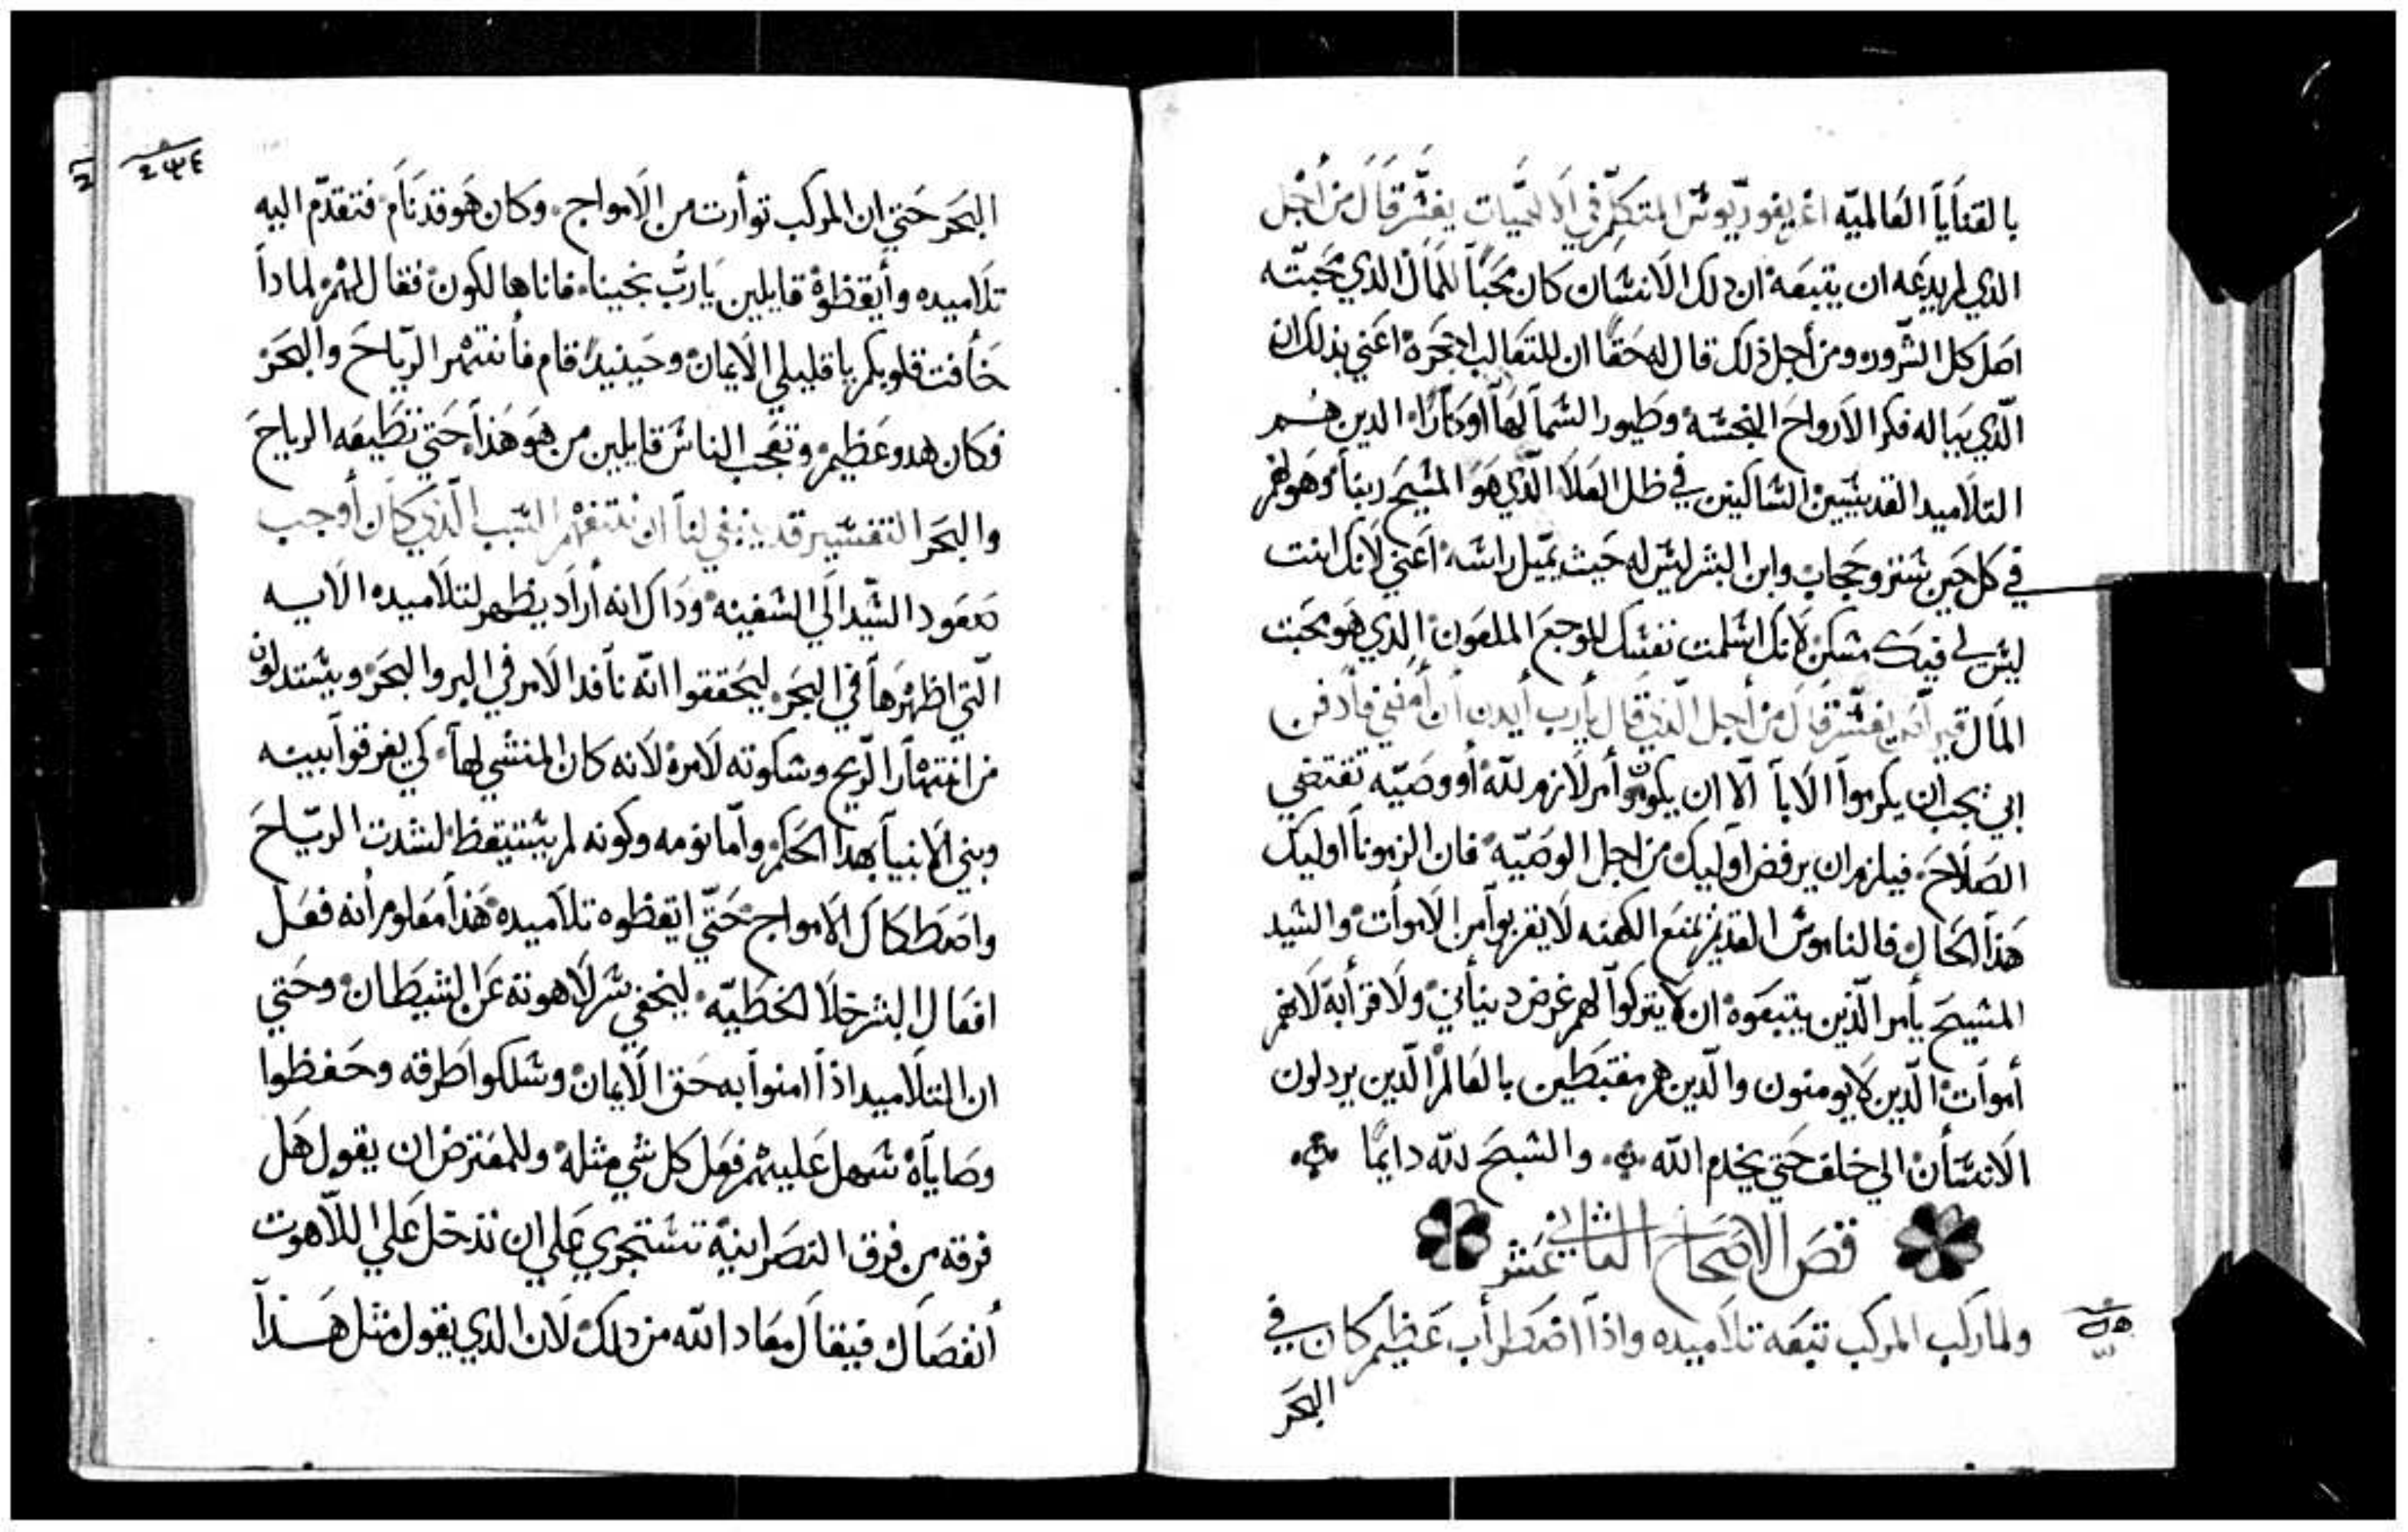 بالقنايا العالميه اغريغوريوس المتكلم في الالهيات يفسر قال من اجل
الذي لم يدعه ان يتبعه ان دلك الانسان كان محباً للمال الذي محبته
اصل كل الشرور ومن أجل ذلك قال له حقاً ان للتعالب احجره اعني بذلك ان
الذي يباله فكر الارواح النجسه وطيور السما لها اوكاراً الدين هم
التلاميد القديسين الساكنين في ظل العلا الذي هو المسيح ربنا وهو لهم
في كل حين ستر وحجاب وابن البشر ليس له حيث يميل راسه اعني لانك انت
ليس لي فيك مسكن لانك اسلمت نفسك للوجع الملعون الذي هو محبت
المال قيرلس يفسر قال من أجل الذي قال يارب أيدن لي ان أمضي فأدفن
ابي يجب ان يكرموا الابا الا ان يكون أمر لازم لله أو وصيه تقتضي
الصلاح فيلزم ان يرفض اوليك من اجل الوصيه فان الزمونا اوليك
هذا الحال فالناموس القديم يمنع الكهنه لا يقربوا من الاموات والسيد
المسيح يأمر الذين يتبعوه ان لا يتركوا لهم غرض دنياني ولا قرابة لانهم
أموات الذين لا يومنون والذين هم مغتبطين بالعالم الذين يردلون
الانسان الي خلف حتي يخدم الله والسبح لله دايماً
فص الاصحاح الثاني عشر
ولما ركب المركب تبعه تلاميده واذا اضطراب عظيم كان في
البحر
البحر حتي ان المركب توارت من الامواج وكان هو قد نام فتقدم اليه
تلاميده وأيقظوه قايلين يارب نجينا فاناهالكون فقال لهم لماداً
خافت قلوبكم يا قليلي الايمان وحينيد قام فأنتهر الرياح والبحر
فكان هدو عظيم وتعجب الناس قايلين من هو هذا حتي تطيعه الرياح
والبحر التفسير قد ينبغي لنا ان نتفهم السبب الذي كان أوجب
صعود السيد الي السفينه وداك انه أراد يظهر لتلاميده الايه
التي اظهرها في البحر ليحققوا انه نافد الامر في البر والبحر ويستدلون
من انتهار الريح وسكوته لامره لانه كان المنشي لها كي يفرقوا بينه
وبين الانبيا بهدا الحكم واما نومه وكونه لم يستيقظ لشدت الرياح
واصطكاك الامواج حتي ايقظوه تلاميده هذا معلوم أنه فعل
افعال البشر خلا الخطيه ليخفي سر لاهوته عن الشيطان وحتي
ان التلاميد اذا امنوا به حق الايمان وسلكوا طرقه وحفظوا
وصاياه سهل عليهم فعل كل شي مثله وللمعترض ان يقول هل
فرقه من فرق النصرانية تستجري علي ان تدخل علي اللاهوت
أنفصال فيقال معاد الله من دلك لان الدي يقول مثل هذا